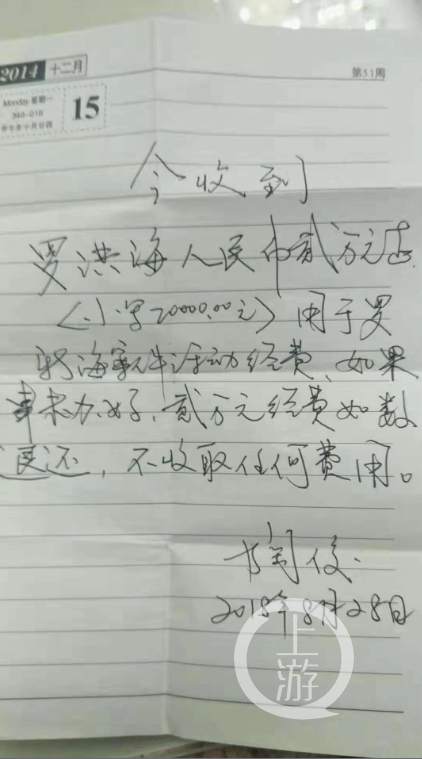 2014 十二月
第51周
Monday 星期一
15
今收到
罗洪海人民币贰万元正
（小写20000.00元）用于罗
海案件活动经费，如果
事未办好，贰万元经费如数
退还，不收取任何费用。
俊
2015年8月28日
上游